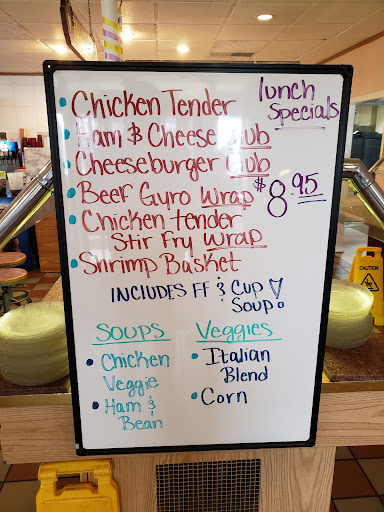 lunch
Specials
Chicken Tender
Ham & Cheese Club
Cheeseburger Club
Beef Gyro Wrap
$8.95
Chicken tender
Stir Fry Wrap
Shrimp Basket
INCLUDES FF & Cup
Soup!
Soups
Chicken
Veggie
Ham &
Bean
Veggies
Italian
Blend
Corn
CAUTION